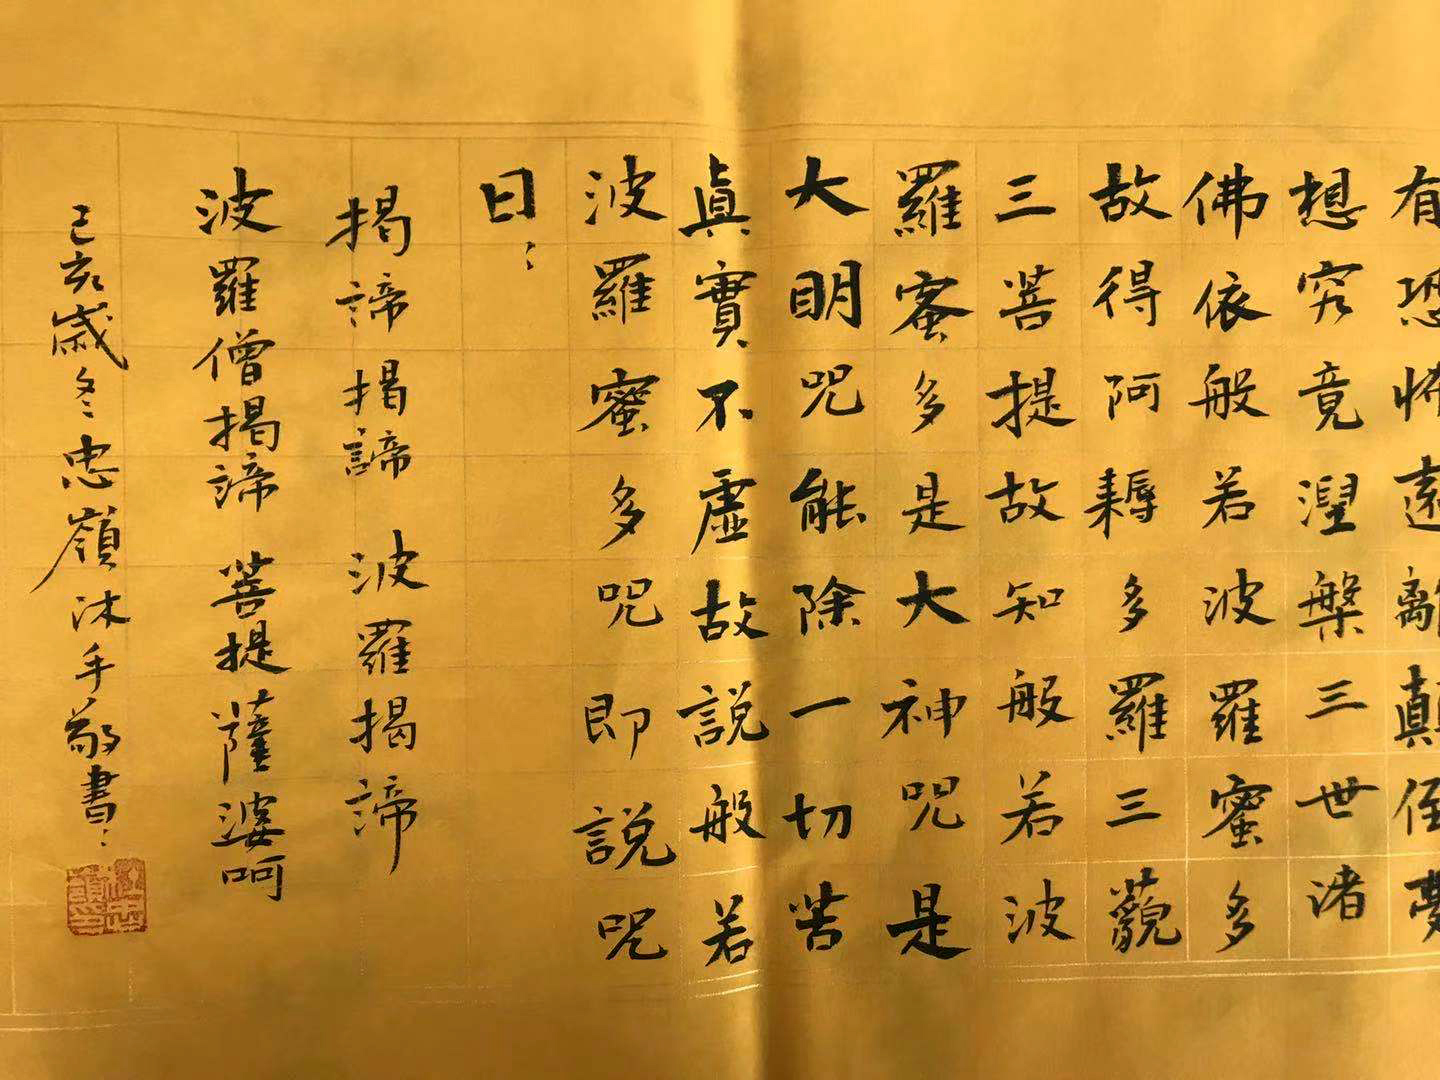 有恐怖遠離顛倒夢
想究竟湼槃三世渚
佛依般若波羅蜜多
故得阿耨多羅三藐
三菩提故知般若波
羅蜜多是大神咒是
大明咒能除一切苦
眞實不虛故說般若
波羅蜜多咒即說咒
曰：
揭諦揭諦 波羅揭諦
波羅僧揭諦 菩提薩婆呵
己亥歲冬忠嶺沐手敬書：